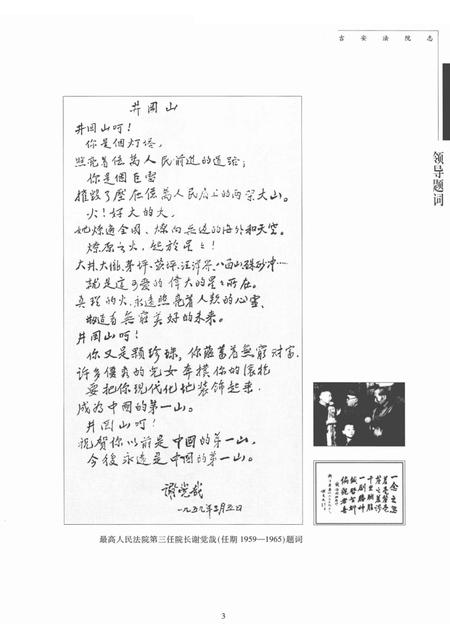 吉安法院志
领导题词
井冈山
井冈山呵!
你是個灯塔,
照亮着億萬人民前进的道路;
你是個巨雷
摧毁了壓在億萬人民肩上的两架大山。
火!好大的火,
她燎遍全国、燎向無边的海外和天空。
燎原之火,起於星星!
大井、大陇、茅坪、茨坪、汪洋界、八面山、硃砂冲……
就是这可爱的偉大的星星所在。
真理的火,永远照亮着人類的心靈、
無窮美好的未来。
井冈山呵!
你又是颗珍珠,你蕴蓄着無窮财富,
许多優秀的儿女在你的懷抱
要把你现代化地装飾起来,
成为中國的第一山。
井冈山呵!
祝贺你以前是中國的第一山,
今後永远是中國的第一山。
谢觉哉
一九五九年三月五日
最高人民法院第三任院长谢觉哉(任期 1959—1965)题词
3